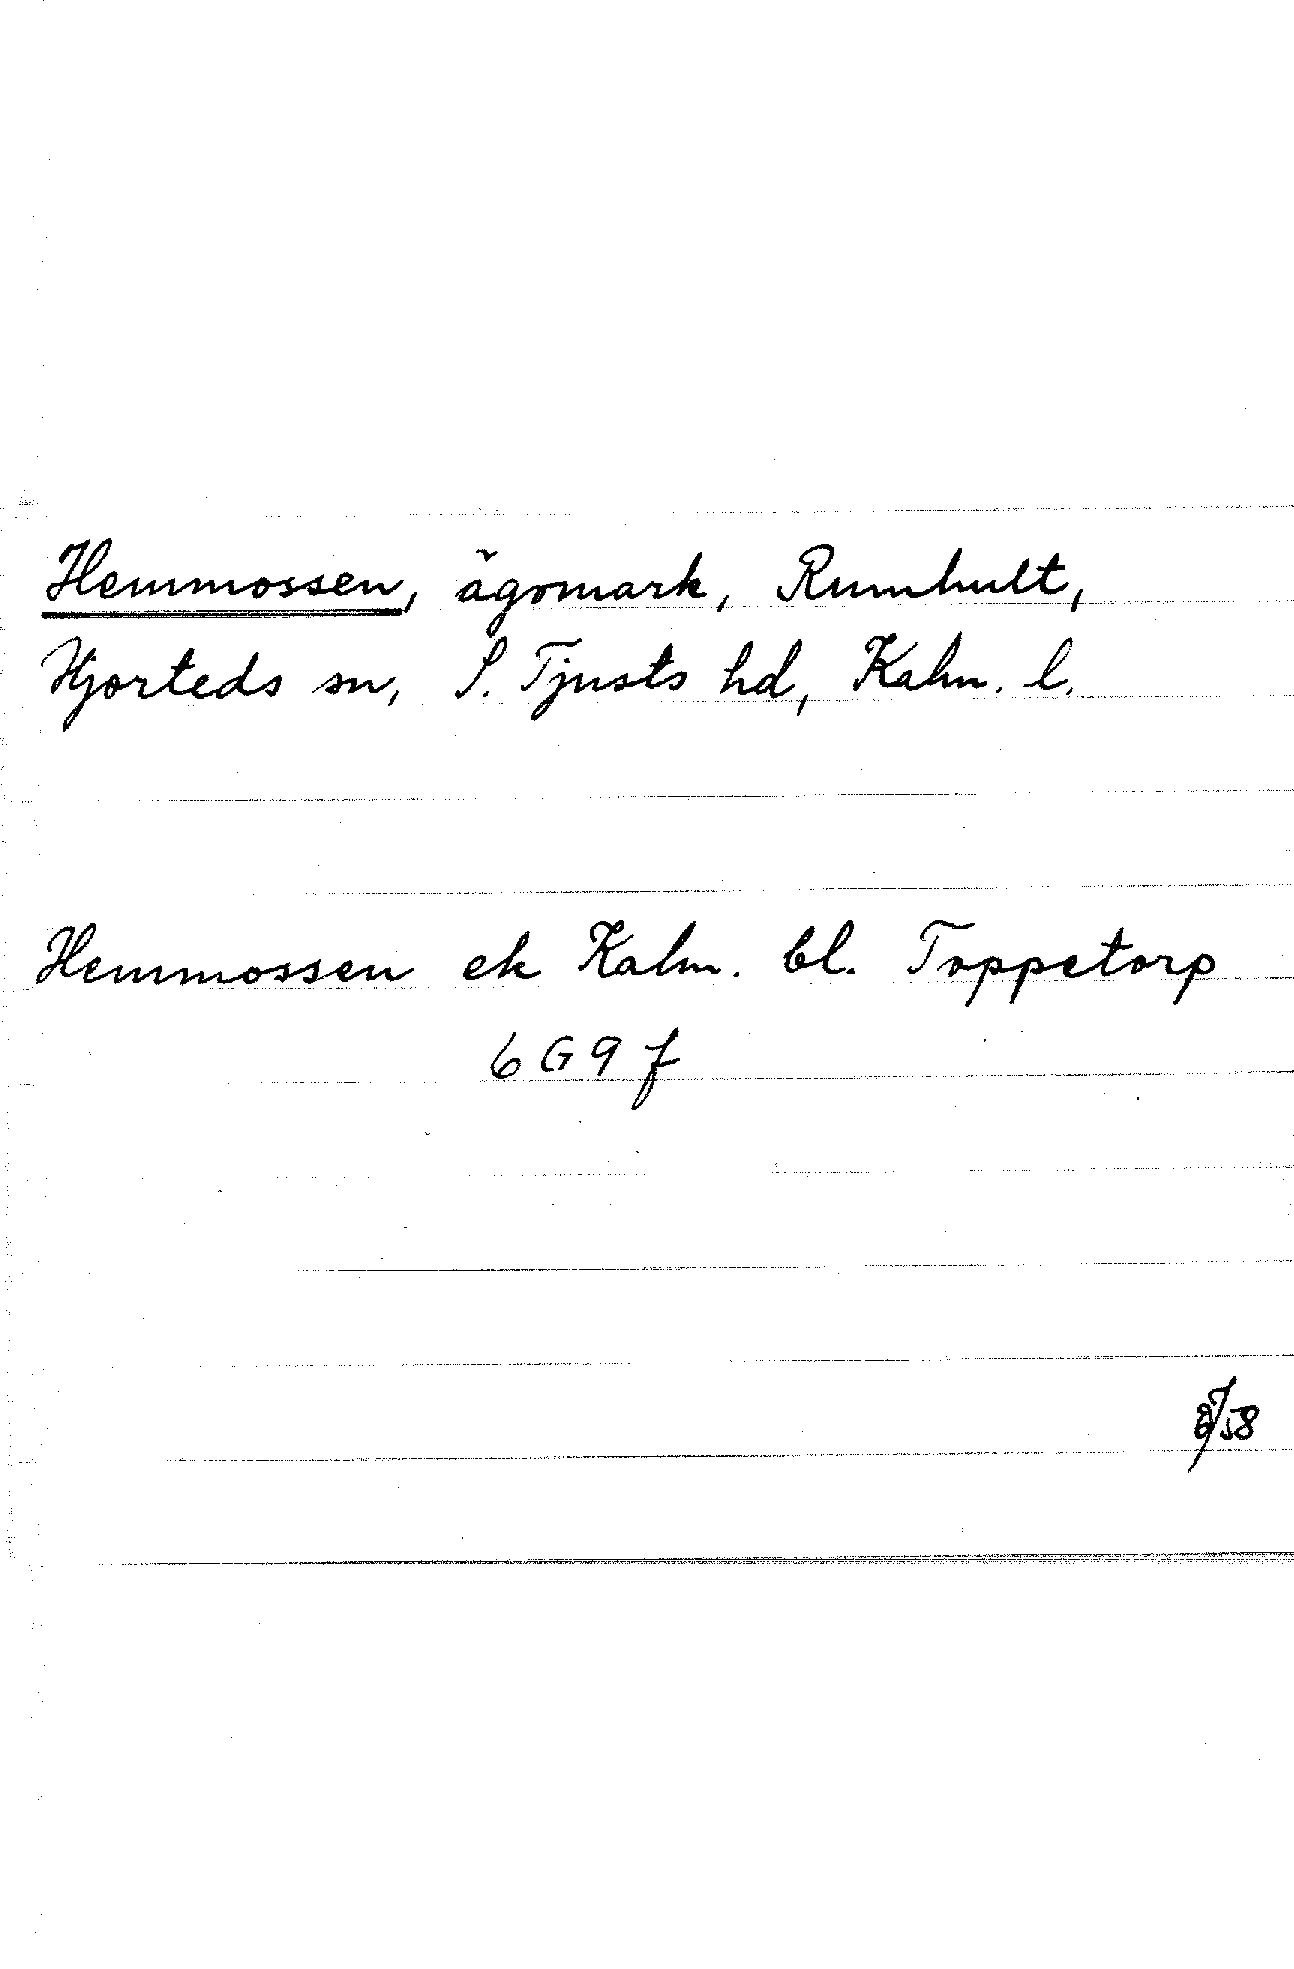 Hemmossen, ägomark, Rumhult,
Hjorteds sn, S. Tjusts hd, Kalm. l.
Hemmossen ek Kalm. bl. Toppetorp
6 G 9 f